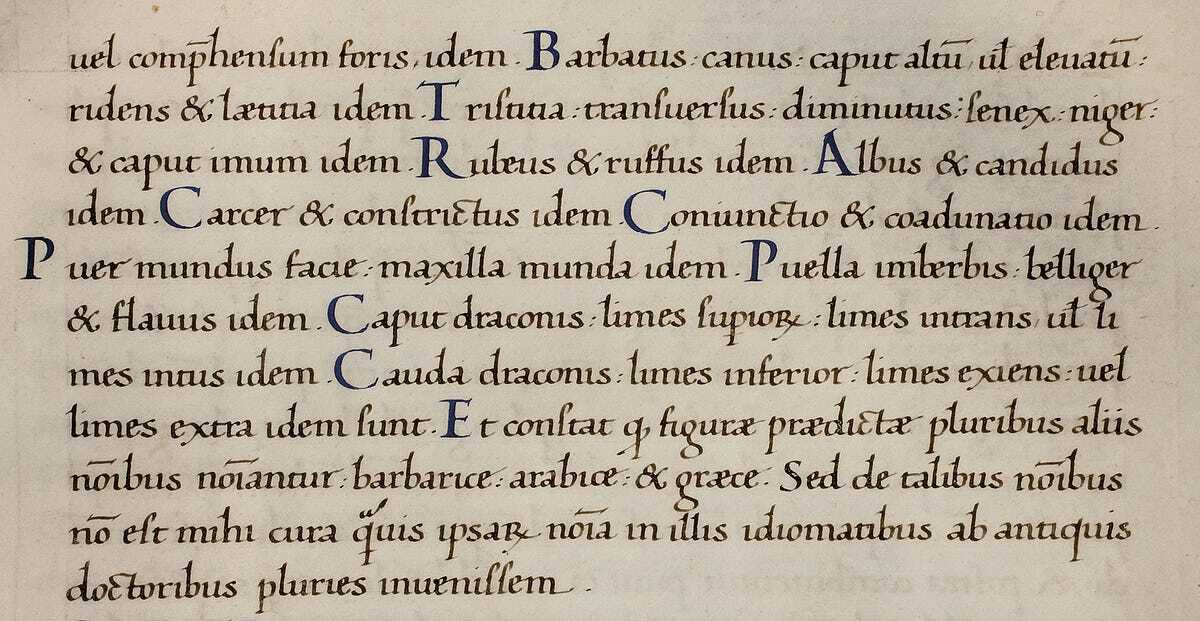 uel comp̄henſum foris, idem. Barbatus: canus: caput altū, ul̄ eleuatū:
ridens & lætitia idem. Triſtitia: tranſuerſus: diminutus: ſenex: niger:
& caput imum idem. Rubeus & ruffus idem. Albus & candidus
idem. Carcer & conſtrictus idem. Coniunctio & coadunatio idem.
Puer mundus facie: maxilla munda idem. Puella imberbis: belliger
& flauus idem. Caput draconis: limes ſup̄ioꝝ: limes intrans, ul̄ li
mes intus idem. Cauda draconis: limes inferior: limes exiens: uel
limes extra idem ſunt. Et conſtat ꝙ figuræ prædictæ pluribus aliis
nōibus nōiantur: barbarice: arabice: & græce. Sed de talibus nōibus
nō eſt mihi cura q̃uis ipsaꝝ nōīa in illis idiomatibus ab antiquis
doctoribus pluries inueniſſem.